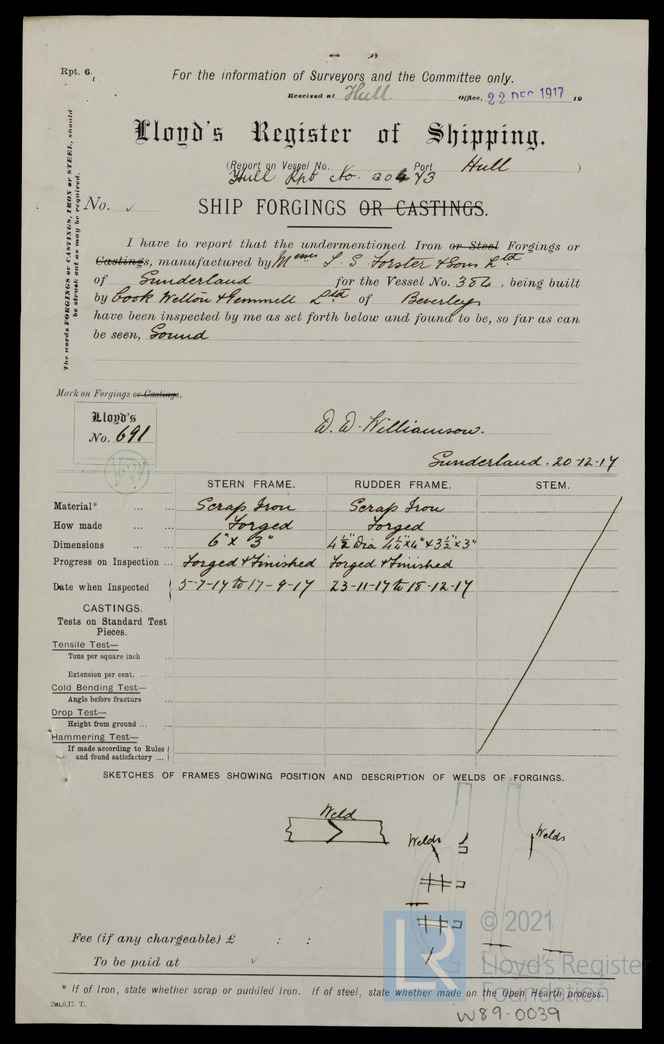 Rpt. 6.
For the information of Surveyors and the Committee only.
Received at Hull. Office, 22 DEC 1917 19
Lloyd's Register of Shipping.
(Report on Vessel No. Port Hull )
Hull Rpt No.
No. ✓
SHIP FORGINGS OR CASTINGS.
The words FORGINGS or CASTINGS, IRON or STEEL, should
be struck out as may be required.
I have to report that the undermentioned Iron or Steel Forgings or
Castings, manufactured by Messrs T. S. Forster & Sons Ltd
of Sunderland for the Vessel No. 386, being built
by Cook Welton & Gemmell Ltd of Beverley
have been inspected by me as set forth below and found to be, so far as can
be seen, Sound
Mark on Forgings or Castings.
Lloyd's
No. 691
W. D. Williamson.
Sunderland. 20-12-17
STERN FRAME. RUDDER FRAME. STEM.
Material* ... ... Scrap Iron Scrap Iron
How made ... ... Forged Forged
Dimensions ... ... 6" x 3" 4½" Dia 4½" x 4" x 3½" x 3"
Progress on Inspection ... Forged & Finished Forged & Finished
Date when Inspected 5-7-17 to 17-9-17 23-11-17 to 18-12-17
CASTINGS.
Tests on Standard Test
Pieces.
Tensile Test—
Tons per square inch ...
Extension per cent. ... ...
Cold Bending Test—
Angle before fracture ...
Drop Test—
Height from ground ... ...
Hammering Test—
If made according to Rules
and found satisfactory ...
SKETCHES OF FRAMES SHOWING POSITION AND DESCRIPTION OF WELDS OF FORGINGS.
Weld
Welds
Welds
Fee (if any chargeable) £ : :
To be paid at ✓
* If of Iron, state whether scrap or puddled Iron. If of steel, state whether made on the Open Hearth process.
2m,6,17. T.
LR
© 2021
Lloyd's Register
Foundation
W89-0039